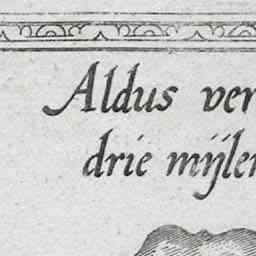 Aldus ver
drie mijlen